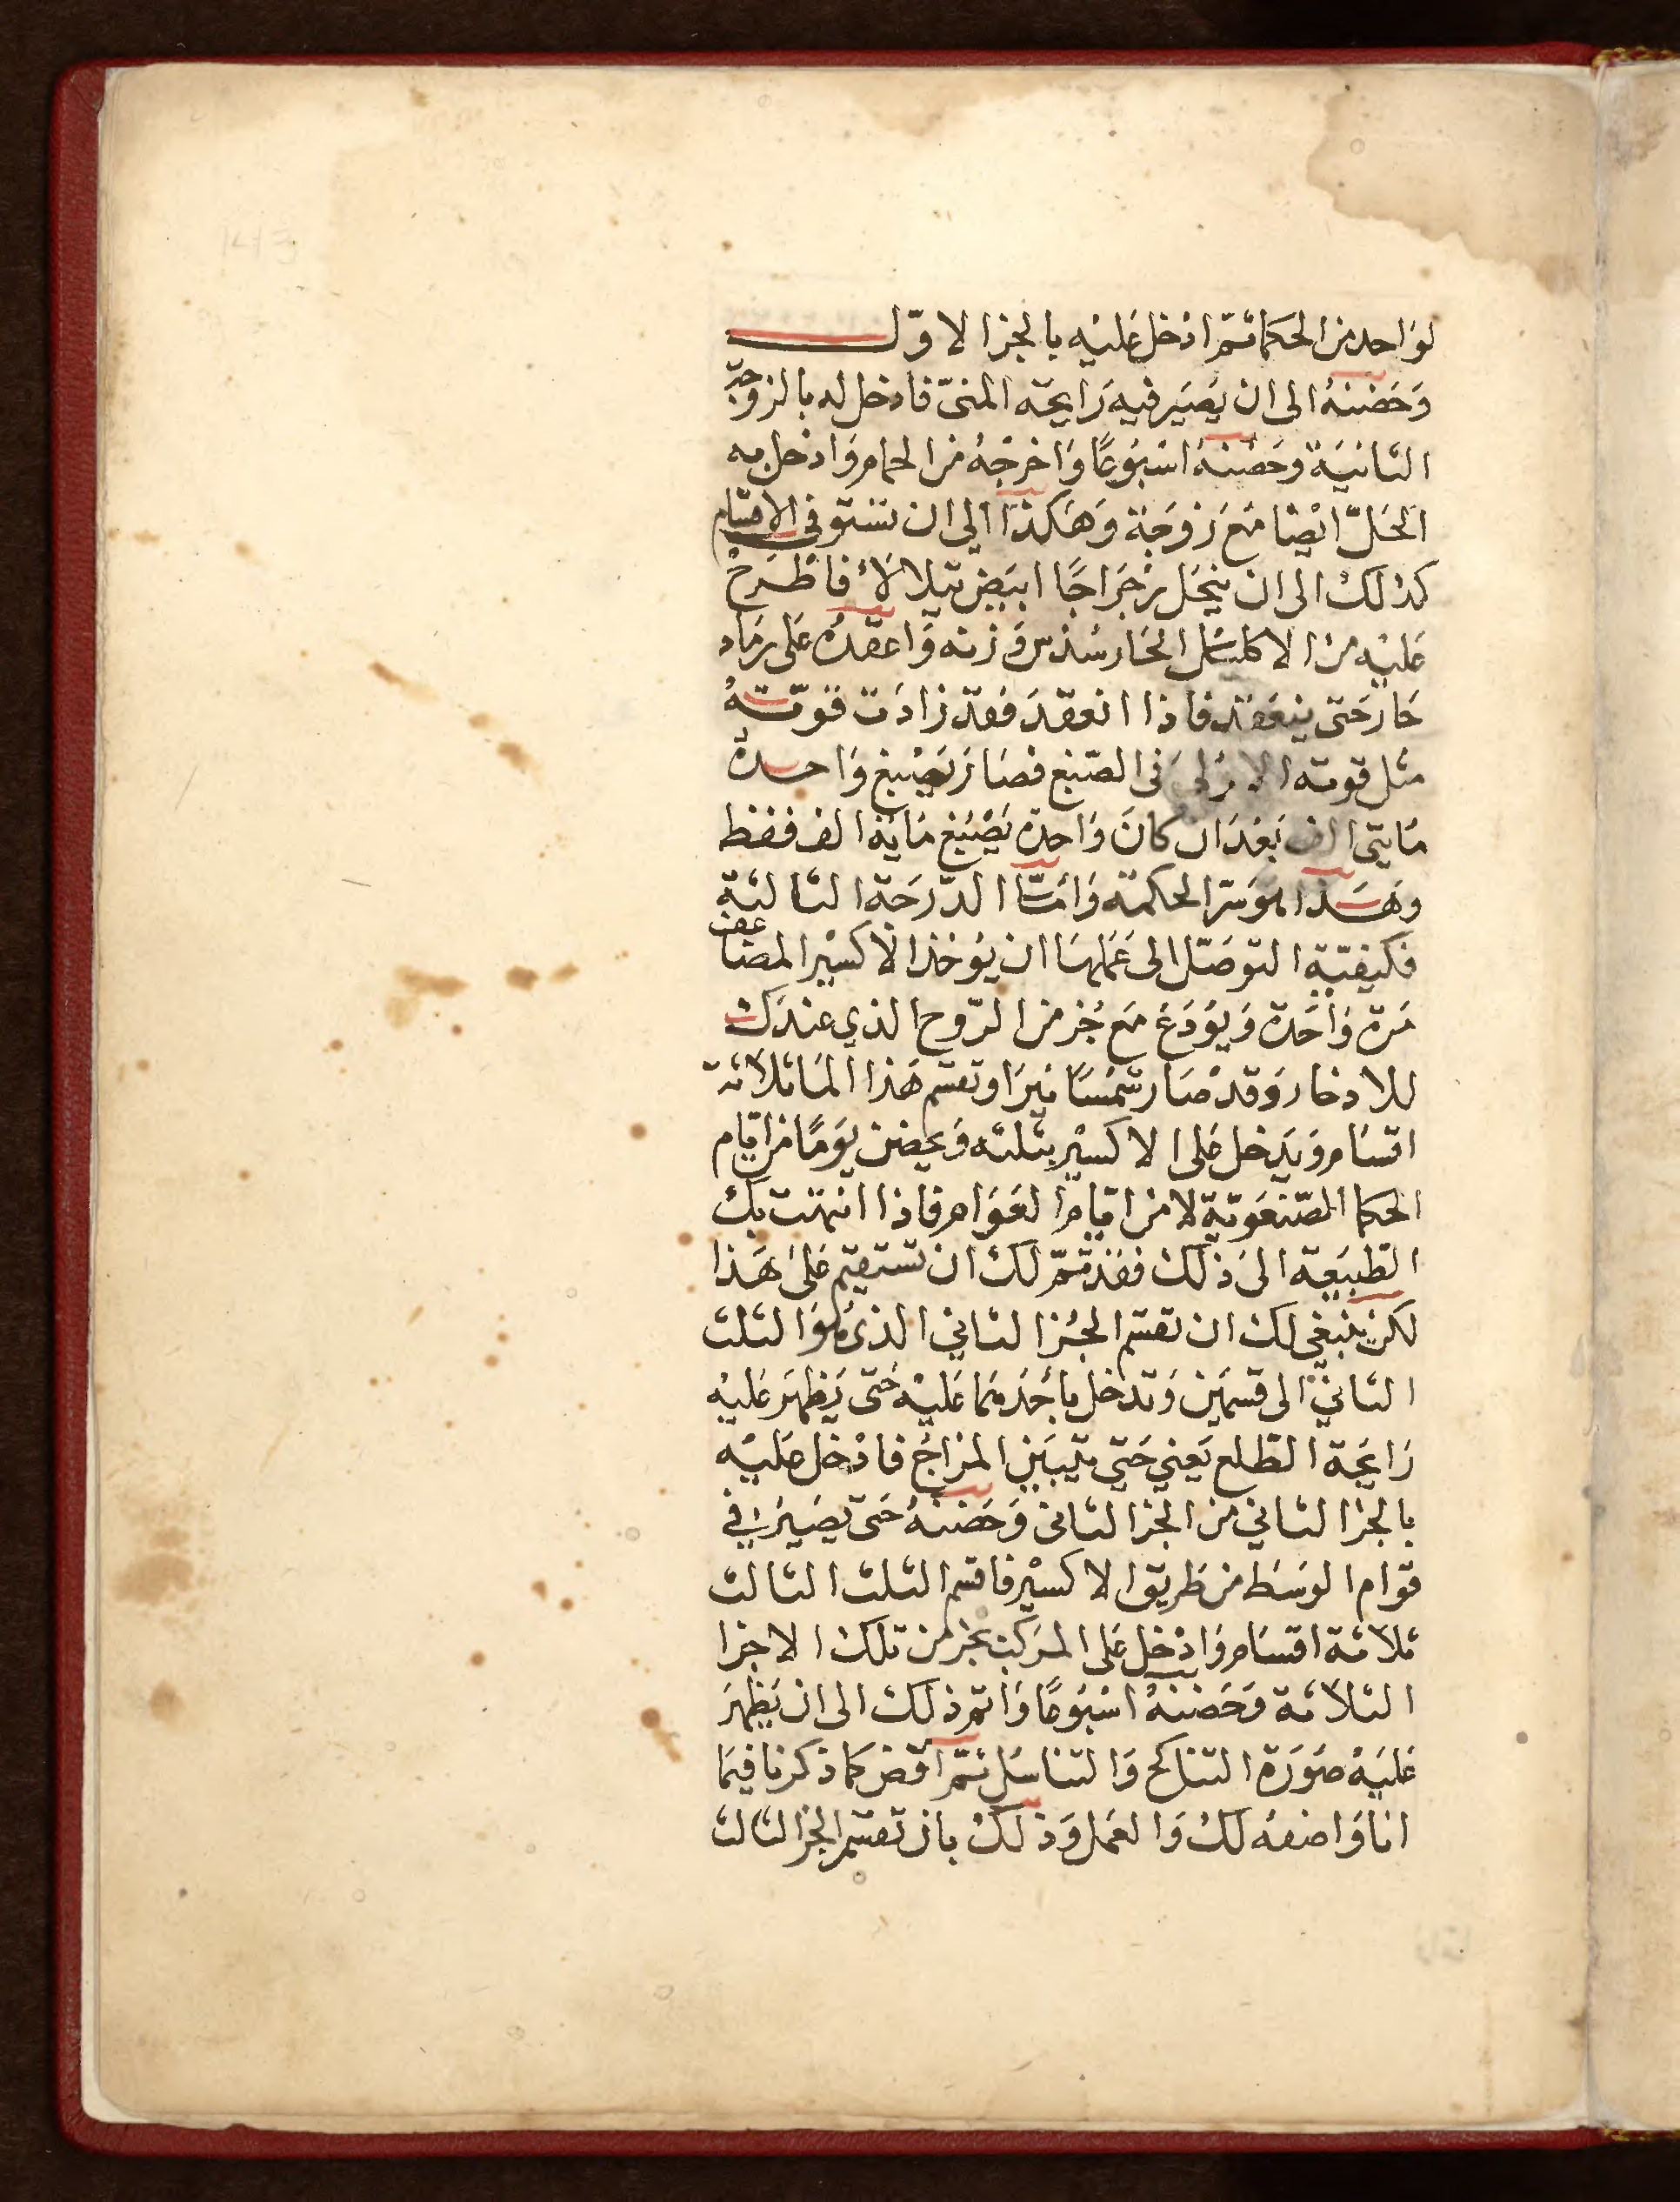 لواحد من الحكما ثم ادخل عليه بالجزا الاول
وحضنه الى ان يصير فيه رايحة المنى فادخل له بالزوجة
الثانية وحضنه اسبوعا واخرجه من الحمام وادخل به
الحل ايضا مع زوجة وهكذا الي ان تستوفي الاقسام
كذلك الى ان ينحل رجراجا ابيض يتلالأ فاطرح
عليه من الاكليل الحار سدس وزنه واعقده على رماد
حار حتى ينعقد فاذا انعقد فقد زادت قوته
مثل قوته الاولى فى الصبغ فصار يصبغ واحده
مايتى الف بعد ان كان واحده يصبغ ماية الف فقط
وهذا هو سر الحكمة واما الدرجة الثالثة
فكيفية التوصل الى عملها ان يوخذ الاكسير المضاعف
مرة واحدة ويودع مع جز من الروح الذي عندك
للادخار وقد صار شمسا نيرا وتقسم هذا الما ثلاثة
اقسام ويدخل على الاكسير بثلثه ويحضن يوما من ايام
الحكما الصنعوية لا من ايام العوام فاذا انتهت بك
الطبيعة الى ذلك فقد تم لك ان تستقيم على هذا
لكن ينبغي لك ان تقسم الجزا الثاني الذى هو الثلث
الثاني الى قسمين وتدخل باحدهما عليه حتى يظهر عليه
رايحة الطلع يعني حتي يتبين المزاج فادخل عليه
بالجزا الثاني من الجزا الثانى وحضنه حتى يصير في
قوام الوسط من طريق الاكسير فاقسم الثلث الثالث
ثلاثة اقسام وادخل على المركب بجز من تلك الاجزا
الثلاثة وحضنه اسبوعا واتم ذلك الى ان يظهر
عليه صورة التناكح والتناسل ثم اقض كما ذكرنا فيما
انا واصفه لك والعمل وذلك بان تقسم الجزا الثالث